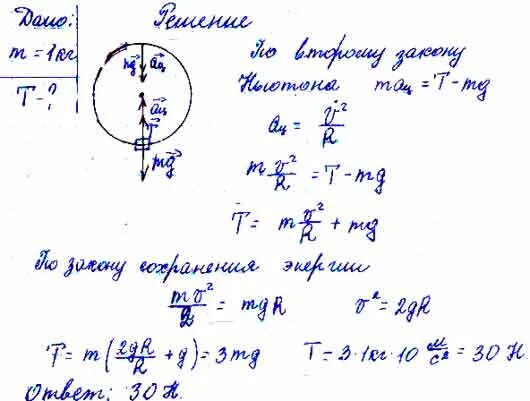 Дано: Решение
m = 1 кг
T - ?
mg⃗ a⃗ц
a⃗ц
T⃗
mg⃗
По второму закону
Ньютона maц = T - mg
aц = v²/R
m v²/R = T - mg
T = m v²/R + mg
По закону сохранения энергии
mv²/2 = mgR v² = 2gR
T = m(2gR/R + g) = 3mg T = 3·1кг·10 м/с² = 30 Н
Ответ: 30 Н.